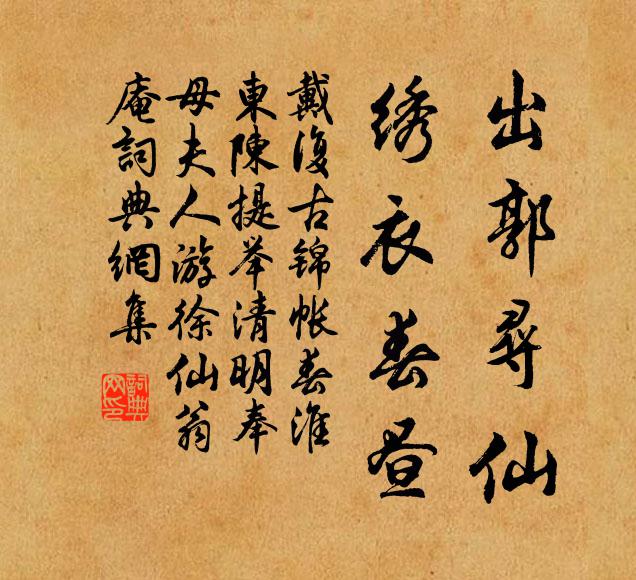 出郭尋仙
绣衣春昼
戴復古錦帳春淮
東陳提举清明奉
母夫人游徐仙翁
庵詞典網集
詞典
网印